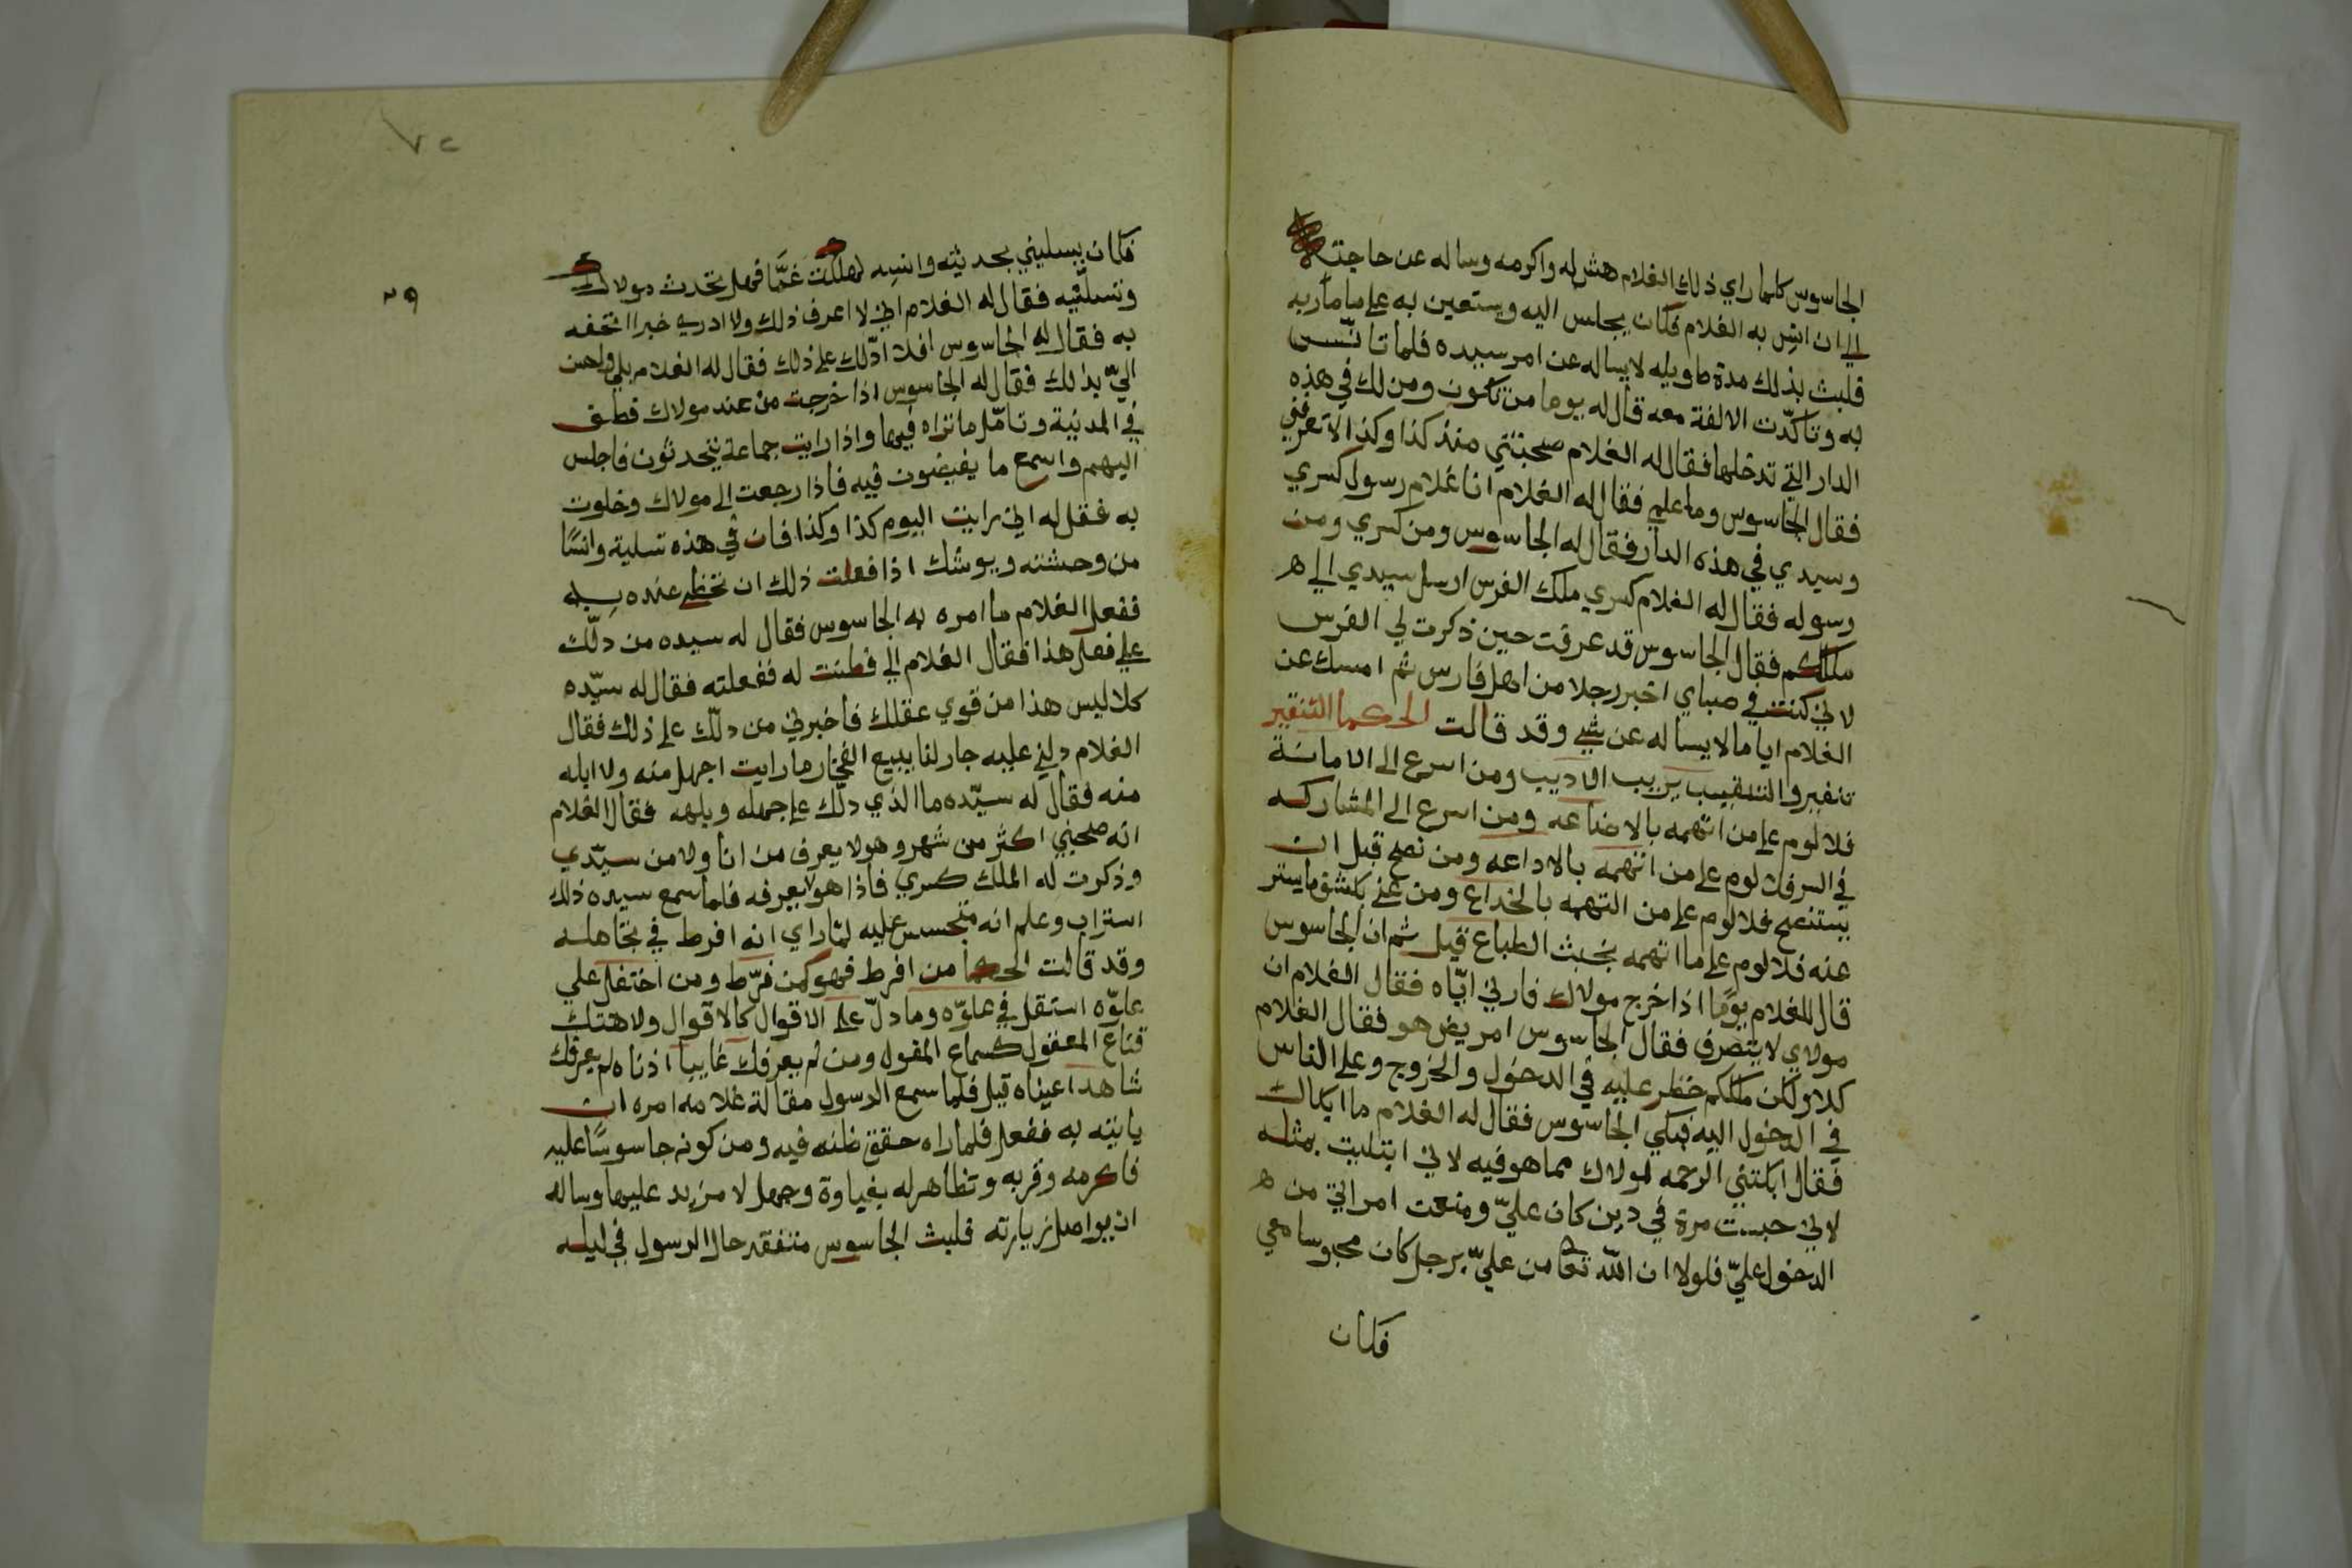 الجاسوس كلما راي ذلك الغلام هش له واكرمه وساله عن حاجته
الي ان انس به الغلام فكان يجلس اليه ويستعين به علي ما مآربه
فلبث بذلك مدة طويله لا يساله عن امر سيده فلما تانّس
به وتاكدّت الالفة معه قال له يوما من تكون ومن لك في هذه
الدار التي تدخلها فقال له الغلام صحبتني منذ كذا وكذا لا تعرفني
فقال الجاسوس وما علمي فقال له الغلام انا غلام رسول كسري
وسيدي في هذه الدار فقال له الجاسوس ومن كسري ومن
رسوله فقال له الغلام كسري ملك الفرس ارسل سيدي الي ه
ملككم فقال الجاسوس قد عرفت حين ذكرت لي الفرس
لاني كنت في صباي اخبر رجلا من اهل فارس ثم امسك عن
الغلام اياما لا يساله عن شي وقد قالت الحكما التنقير
تنفير والتنقيب يريب الاديب ومن اسرع الي الامانة
فلا لوم علي من اتهمه بالاضاعه ومن اسرع الي المشاركه
في السر فلا لوم علي من اتهمه بالاداعه ومن نصح قبل ان
يستنصح فلا لوم علي من التهمه بالخداع ومن عني بكشف ما يستر
عنه فلا لوم علي ما اتهمه بخبث الطباع قيل ثم ان الجاسوس
قال للغلام يومًا اذا خرج مولاك فارني ايّاه فقال الغلام ان
مولاي لا يتصرف فقال الجاسوس امريض هو فقال الغلام
كلا ولكن ملككم حظر عليه في الدخول والخروج وعلي الناس
في الدخول اليه فبكي الجاسوس فقال له الغلام ما ابكاك
فقال ابكتني الرحمه لمولاك مما هو فيه لاني ابتليت بمثله
لاني حبست مرة في دين كان عليّ ومنعت امراتي من ه
الدخول عليّ فلولا ان الله تعا من عليّ برجل كان محبوسا معي
فكان
٧٢
٣٩
فكان يسليني بحديثه وانسه لهلكت غمًّا فهل تحدث مولاك
وتسليّه فقال له الغلام اني لا اعرف ذلك ولا ادري خبرا اتحفه
به فقال له الجاسوس افلا ادّلك علي ذلك فقال له الغلام بلي واحسن
اليّ بذلك فقال له الجاسوس اذا خرجت من عند مولاك فطف
في المدينة وتامّل ما تراه فيها واذا رايت جماعة يتحدثون فاجلس
اليهم واسمع ما يفيضون فيه فاذا رجعت الي مولاك وخلوت
به فقل له اني رايت اليوم كذا وكذا فان في هذه تسلية وانسًا
من وحشته ويوشك اذا فعلت ذلك ان تحظي عنده به
ففعل الغلام ما امره به الجاسوس فقال له سيده من دلّك
علي فعل هذا فقال الغلام اني فطنت له ففعلته فقال له سيّده
كلا ليس هذا من قوي عقلك فاخبرني من دلّك علي ذلك فقال
الغلام دلني عليه جار لنا يبيع الفخار ما رايت اجهل منه ولا ابله
منه فقال له سيّده ما الذي دلّك علي جهله وبلهه فقال الغلام
انه صحبني اكثر من شهر وهو لا يعرف من انا ولا من سيّدي
وذكرت له الملك كسري فاذا هو لا يعرفه فلما سمع سيده ذلك
استراب وعلم انه متجسس عليه لمّا راي انه افرط في تجاهله
وقد قالت الحكما من افرط فهو كمن فرّط ومن احتفل علي
عدوّه استقل في عدوّه وما دلّ علي الاقوال كالاقوال ولا هتك
قناع المعقول كسماع المقول ومن لم يعرفك غايبا اذناه لم يعرفك
شاهدا عيناه قيل فلما سمع الرسول مقالة غلامه امره ان
ياتيه به ففعل فلما راه حقق ظنه فيه ومن كونه جاسوسًا عليه
فاكرمه وقربه وتظاهر له بغباوة وجهل لا مزيد عليها وساله
ان يواصل زيارته فلبث الجاسوس متفقد حال الرسول في ليله